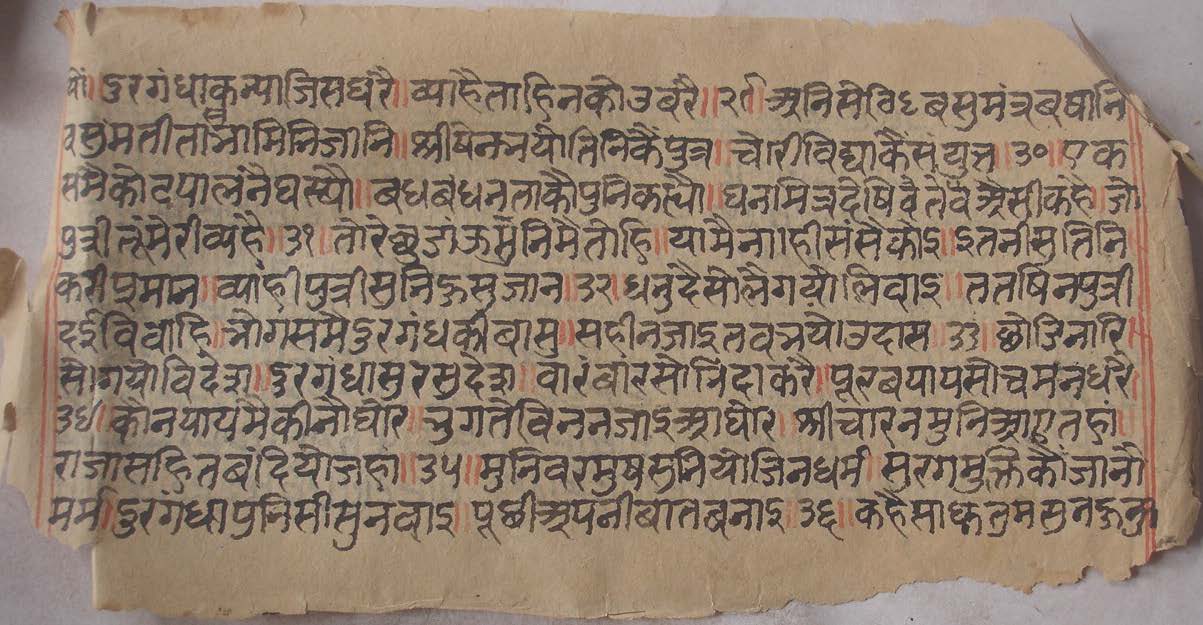 यों॥ डुरगंधाकन्याजिसघरै॥ व्याहैताहिनकोउबरै॥२९॥ अनिसेविइबसुमंत्रबषानि
वसुंमतीतानामिनिजांनि॥ श्रीषेनभयौतिनिकैंपुत्र॥ चोरीविद्याकैसंयुत्त॥३०॥ एक
समैकोटपालनैघस्यौ॥ बधबंधनताकौपुनिकह्यौ॥ धनमित्रदेषिवैतवअैसीकहै॥ जौ
पुत्रीतूंमेरीव्यहै॥३१॥ तोरेछुडांऊंमुनिमैतोहि॥ यामैनाहीसंसैकोइ॥ इतनीसुनिति
करीप्रमान॥ व्यांहीपुत्रीसुनिहुसुजान॥३२॥ धनुदैसोलैगयोलिवाइ॥ ततषिनपुत्री
दईविवाहि॥ भोगसमैडुरगंधकीबासु॥ सहीनजाइतवभयोउदास॥३३॥ छोडिनारि
सोगयोविदेश॥ डुरगंधासुरसुदेश॥ वारंबारसोनिंदाकरै॥ पूरबपापसोचमनधरै
३४॥ कोनपापमैकीनोघोर॥ भुगतेविननजाइअघोर॥ श्रीचारनमुनिआएतहां
राजासहितबांदियोजहां॥३५॥ मुनिवरमुषसुनियोजिनधर्म॥ सुरगमुक्तिकौजानौ
मर्म॥ डुरगंधापुनिसीसुनवाइ॥ पूछीअपनीबातबनाइ॥३६॥ कहैसाधतुमसुनहु